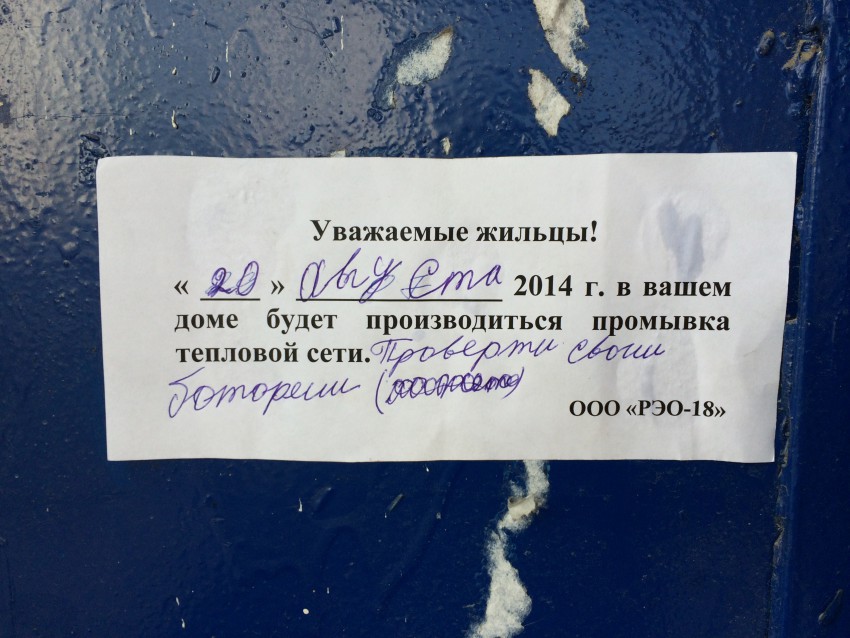 Уважаемые жильцы!
« 20 » августа 2014 г. в вашем
доме будет производиться промывка
тепловой сети. Проверти свои
ботореии (
ООО «РЭО-18»